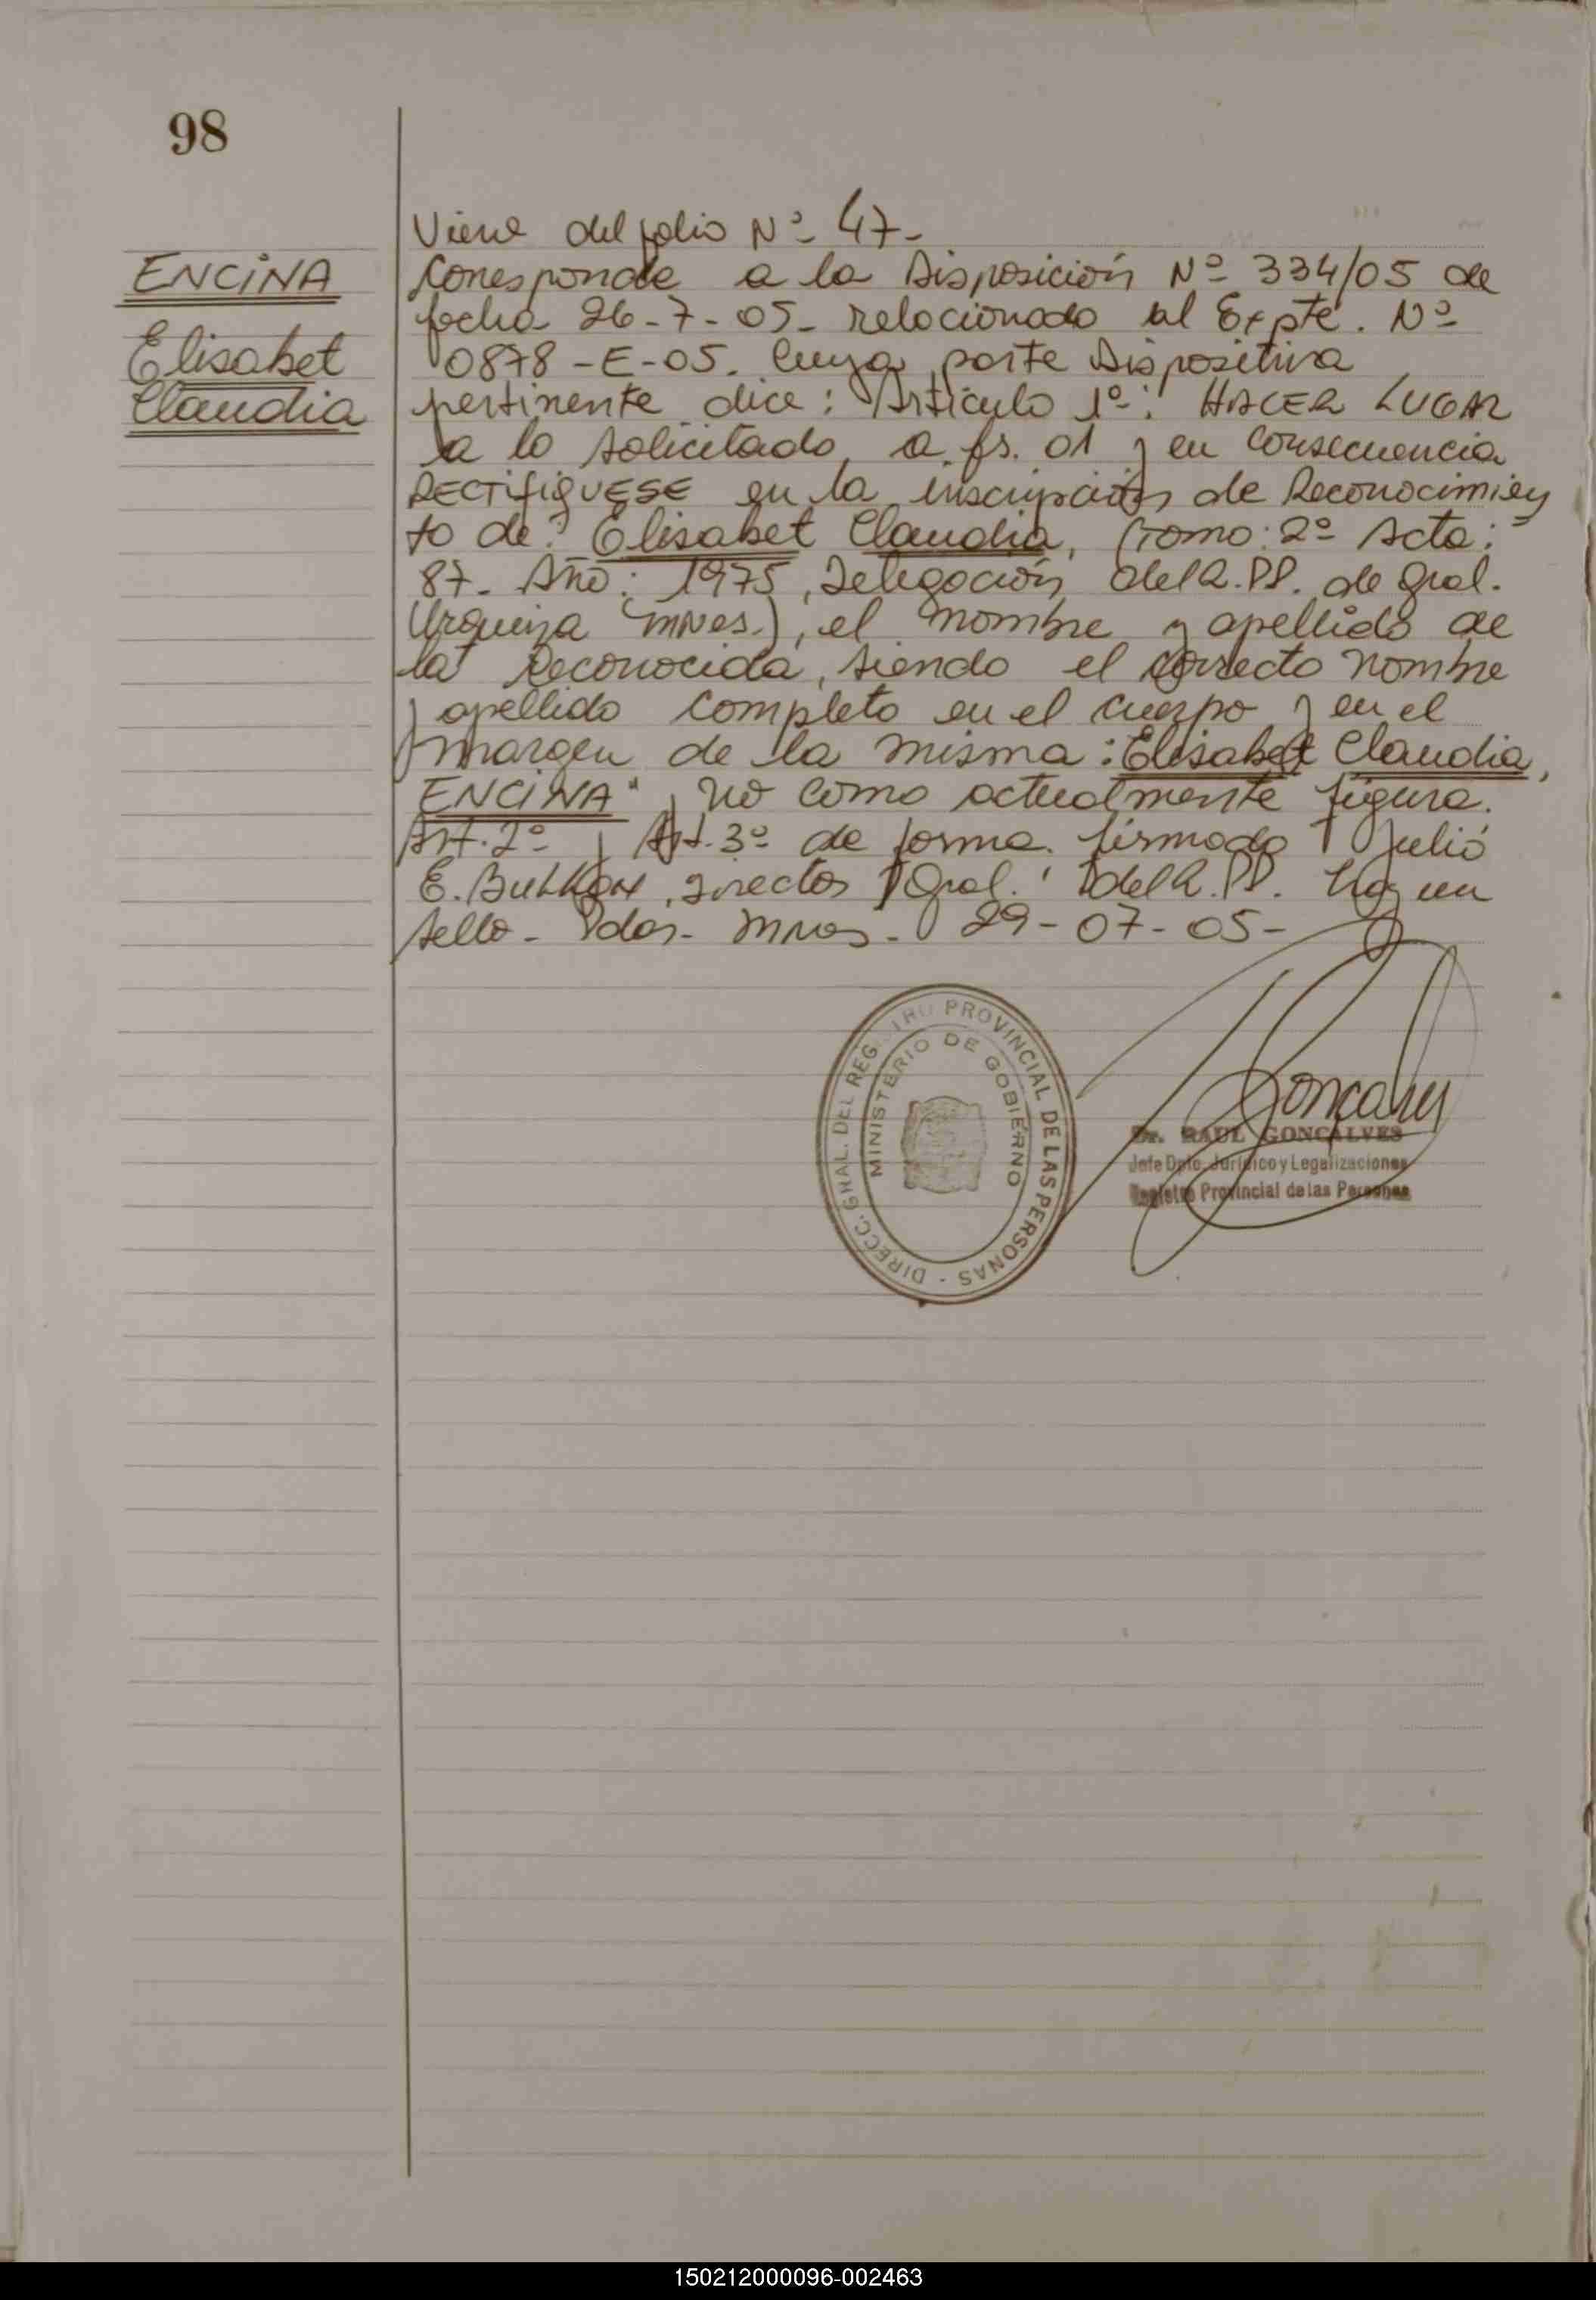 98
ENCINA
Elisabet
Claudia
Viene del folio Nº 47-
Corresponde a la Disposición Nº 334/05 de
fecha 26-7-05- relacionado al Expte. Nº
0878-E-05. Cuya parte Dispositiva
pertinente dice: Artículo 1º: HACER LUGAR
a lo solicitado a fs. 01 y en consecuencia
RECTIFIQUESE en la inscripción de Reconocimien
to de: Elisabet Claudia, (Tomo: 2º Acta:
87- Año: 1975, Delegación del R.PP. de Gral.
Urquiza Mnes.), el nombre y apellido de
la Reconocida, siendo el correcto nombre
y apellido completo en el cuerpo y en el
margen de la misma: Elisabet Claudia,
ENCINA" y no como actualmente figura.
Art. 2º y Art. 3º de forma. firmado Julio
E. , Director Gral. del R.PP. Hay un
sello- Pdas- Mnes- 29-07-05-
DIRECC. GRAL. DEL REGISTRO PROVINCIAL DE LAS PERSONAS -
MINISTERIO DE GOBIERNO
Goncalves
Dr. RAUL GONCALVES
Jefe Dpto. Jurídico y Legalizaciones
Registro Provincial de las Personas
150212000096-002463